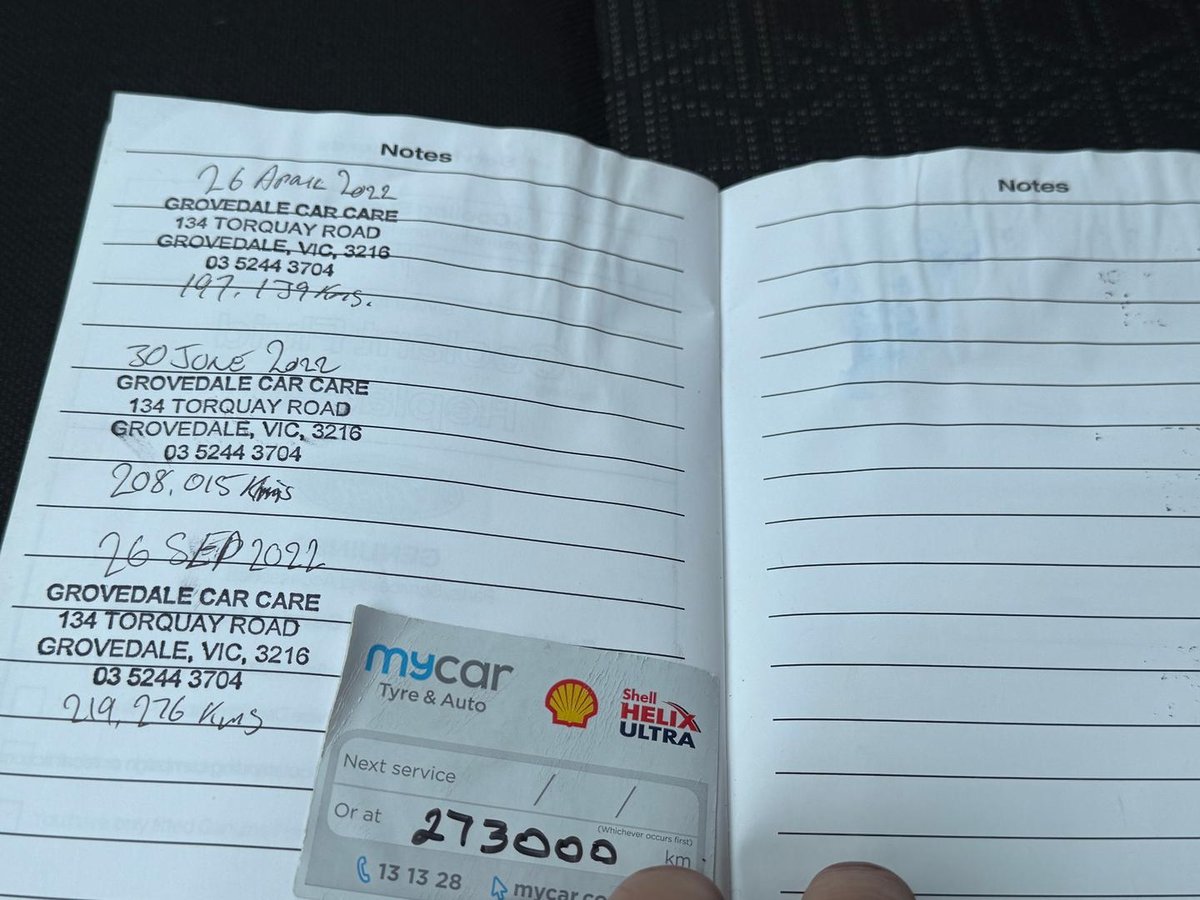 Notes
26 APRIL 2022
GROVEDALE CAR CARE
134 TORQUAY ROAD
GROVEDALE, VIC, 3216
03 5244 3704
197,139 Kms.
30 JUNE 2022
GROVEDALE CAR CARE
134 TORQUAY ROAD
GROVEDALE, VIC, 3216
03 5244 3704
208,015 Kms
26 SEP 2022
GROVEDALE CAR CARE
134 TORQUAY ROAD
GROVEDALE, VIC, 3216
03 5244 3704
219,276 Kms
mycar
Tyre & Auto
Shell
HELIX
ULTRA
Next service / /
Or at 273000 km
(Whichever occurs first)
13 13 28 mycar.co
Notes